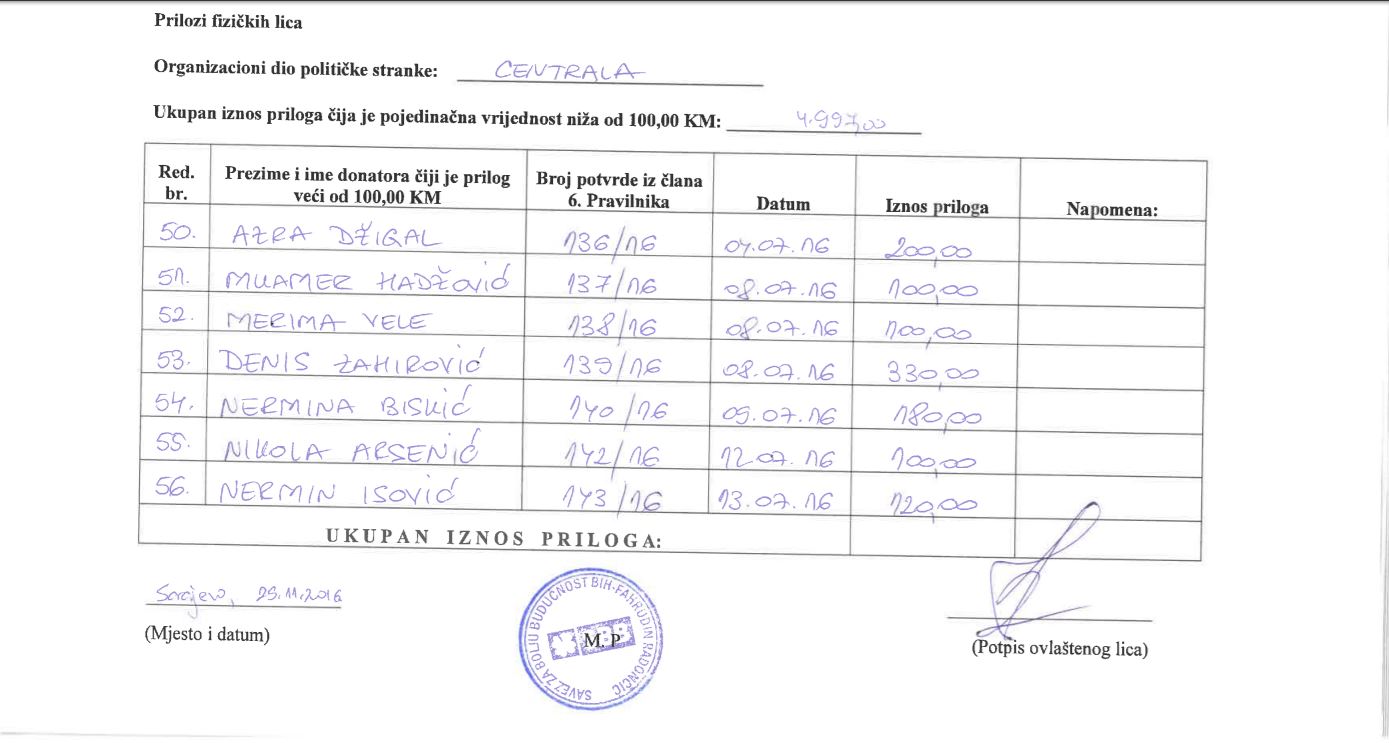 Prilozi fizičkih lica
Organizacioni dio političke stranke: CENTRALA
Ukupan iznos priloga čija je pojedinačna vrijednost niža od 100,00 KM: 4.997,00
Red. br. Prezime i ime donatora čiji je prilog veći od 100,00 KM Broj potvrde iz člana 6. Pravilnika Datum Iznos priloga Napomena:
50. AZRA DŽIGAL 136/16 04.07.16 200,00
51. MUAMER HADŽOVIĆ 137/16 08.07.16 100,00
52. MERIMA VELE 138/16 08.07.16 100,00
53. DENIS ZAHIROVIĆ 139/16 08.07.16 330,00
54. NERMINA BISKIĆ 140/16 09.07.16 180,00
55. NIKOLA ARSENIĆ 142/16 12.07.16 100,00
56. NERMIN ISOVIĆ 143/16 13.07.16 120,00
UKUPAN IZNOS PRILOGA:
Sarajevo, 29.11.2016
(Mjesto i datum)
SAVEZ ZA BOLJU BUDUĆNOST BIH-FAHRUDIN RADONČIĆ
SBB
M. P
(Potpis ovlaštenog lica)